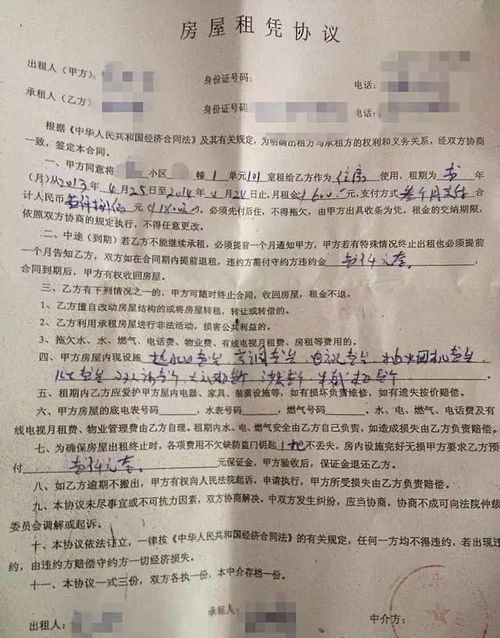 房屋租凭协议
出租人（甲方） 身份证号码： 电话：
承租人（乙方） 身份证号码： 电话：
根据《中华人民共和国经济合同法》及其有关规定，为明确出租方与承租方的权利和义务关系，经双方协商
一致，签定本合同。
一、甲方同意将 小区 幢 1 单元 101 室租给乙方作 住房 使用，租期为 年
（月）从2013年4月25日至2014年4月24日止，月租金 1600 元，支付方式
计人民币 必须先付后住，不得拖欠，由甲方出具收条为凭。租金的交纳期限，
依照双方协商的规定执行，不得任意更改。
二、中途（到期）若乙方不能继续承租，必须提前一个月通知甲方，甲方若有特殊情况终止出租也必须提前
一个月告知乙方，双方如在合同期内提前退租，违约方需付守约方违约金
合同到期后，甲方有权收回房屋。
三、乙方有下列情况之一的，甲方可随时终止合同，收回房屋，租金不退。
1、乙方擅自改动房屋结构的或将房屋转租，转让或转借的。
2、乙方利用承租房屋进行非法活动，损害公共利益的。
3、拖欠水、水、燃气、电话费、物业费、有线电视月租费、房租等费用的。
四、甲方房屋内现设施
五、租期内乙方应受护方屋内电器、家具、装潢设施等，如有损坏负责修偿，如有遗失按价赔偿。
六、甲方房屋的底电表号码 水表号码 ，燃气号码 水、电、燃气、电话费及有
线电视月租费、物业管理费由乙方自理。租期内水、电、燃气安全由乙方自己负责，如造成损失由乙方负责赔偿。
七、为确保房屋出租终止时，各项费用不欠缺防盗门钥匙 1把 不丢失，房内设施完好无损甲方要求乙方预
付 元保证金，甲方验收后，保证金退还乙方。
八、如乙方逾期不搬出，甲方有权向人民法院起诉，申请执行，甲方所受损失由乙方负责赔偿。
九、本协议未尽事宜或不可抗力因素，双方协商解决。中双方发生纠纷，应当协商，协商不成可向法院仲裁
委员会调解或起诉。
十、本协议依法订立，一律按《中华人民共和国经济合同法》的有关规定，任何一方均不得违约，若出现违
约，由违约方赔偿守约方一切经济损失。
十一、本协议一式三份，双方各执一份，本中介存档一份。
出租人： 承租人： 中介方：